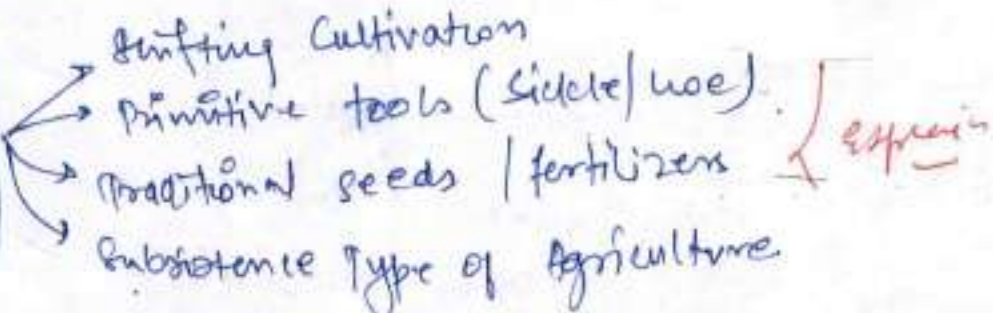 Shifting Cultivation
Primitive tools (Sickle/hoe)
Traditional seeds / fertilizers
Explain
Subsistence Type of Agriculture